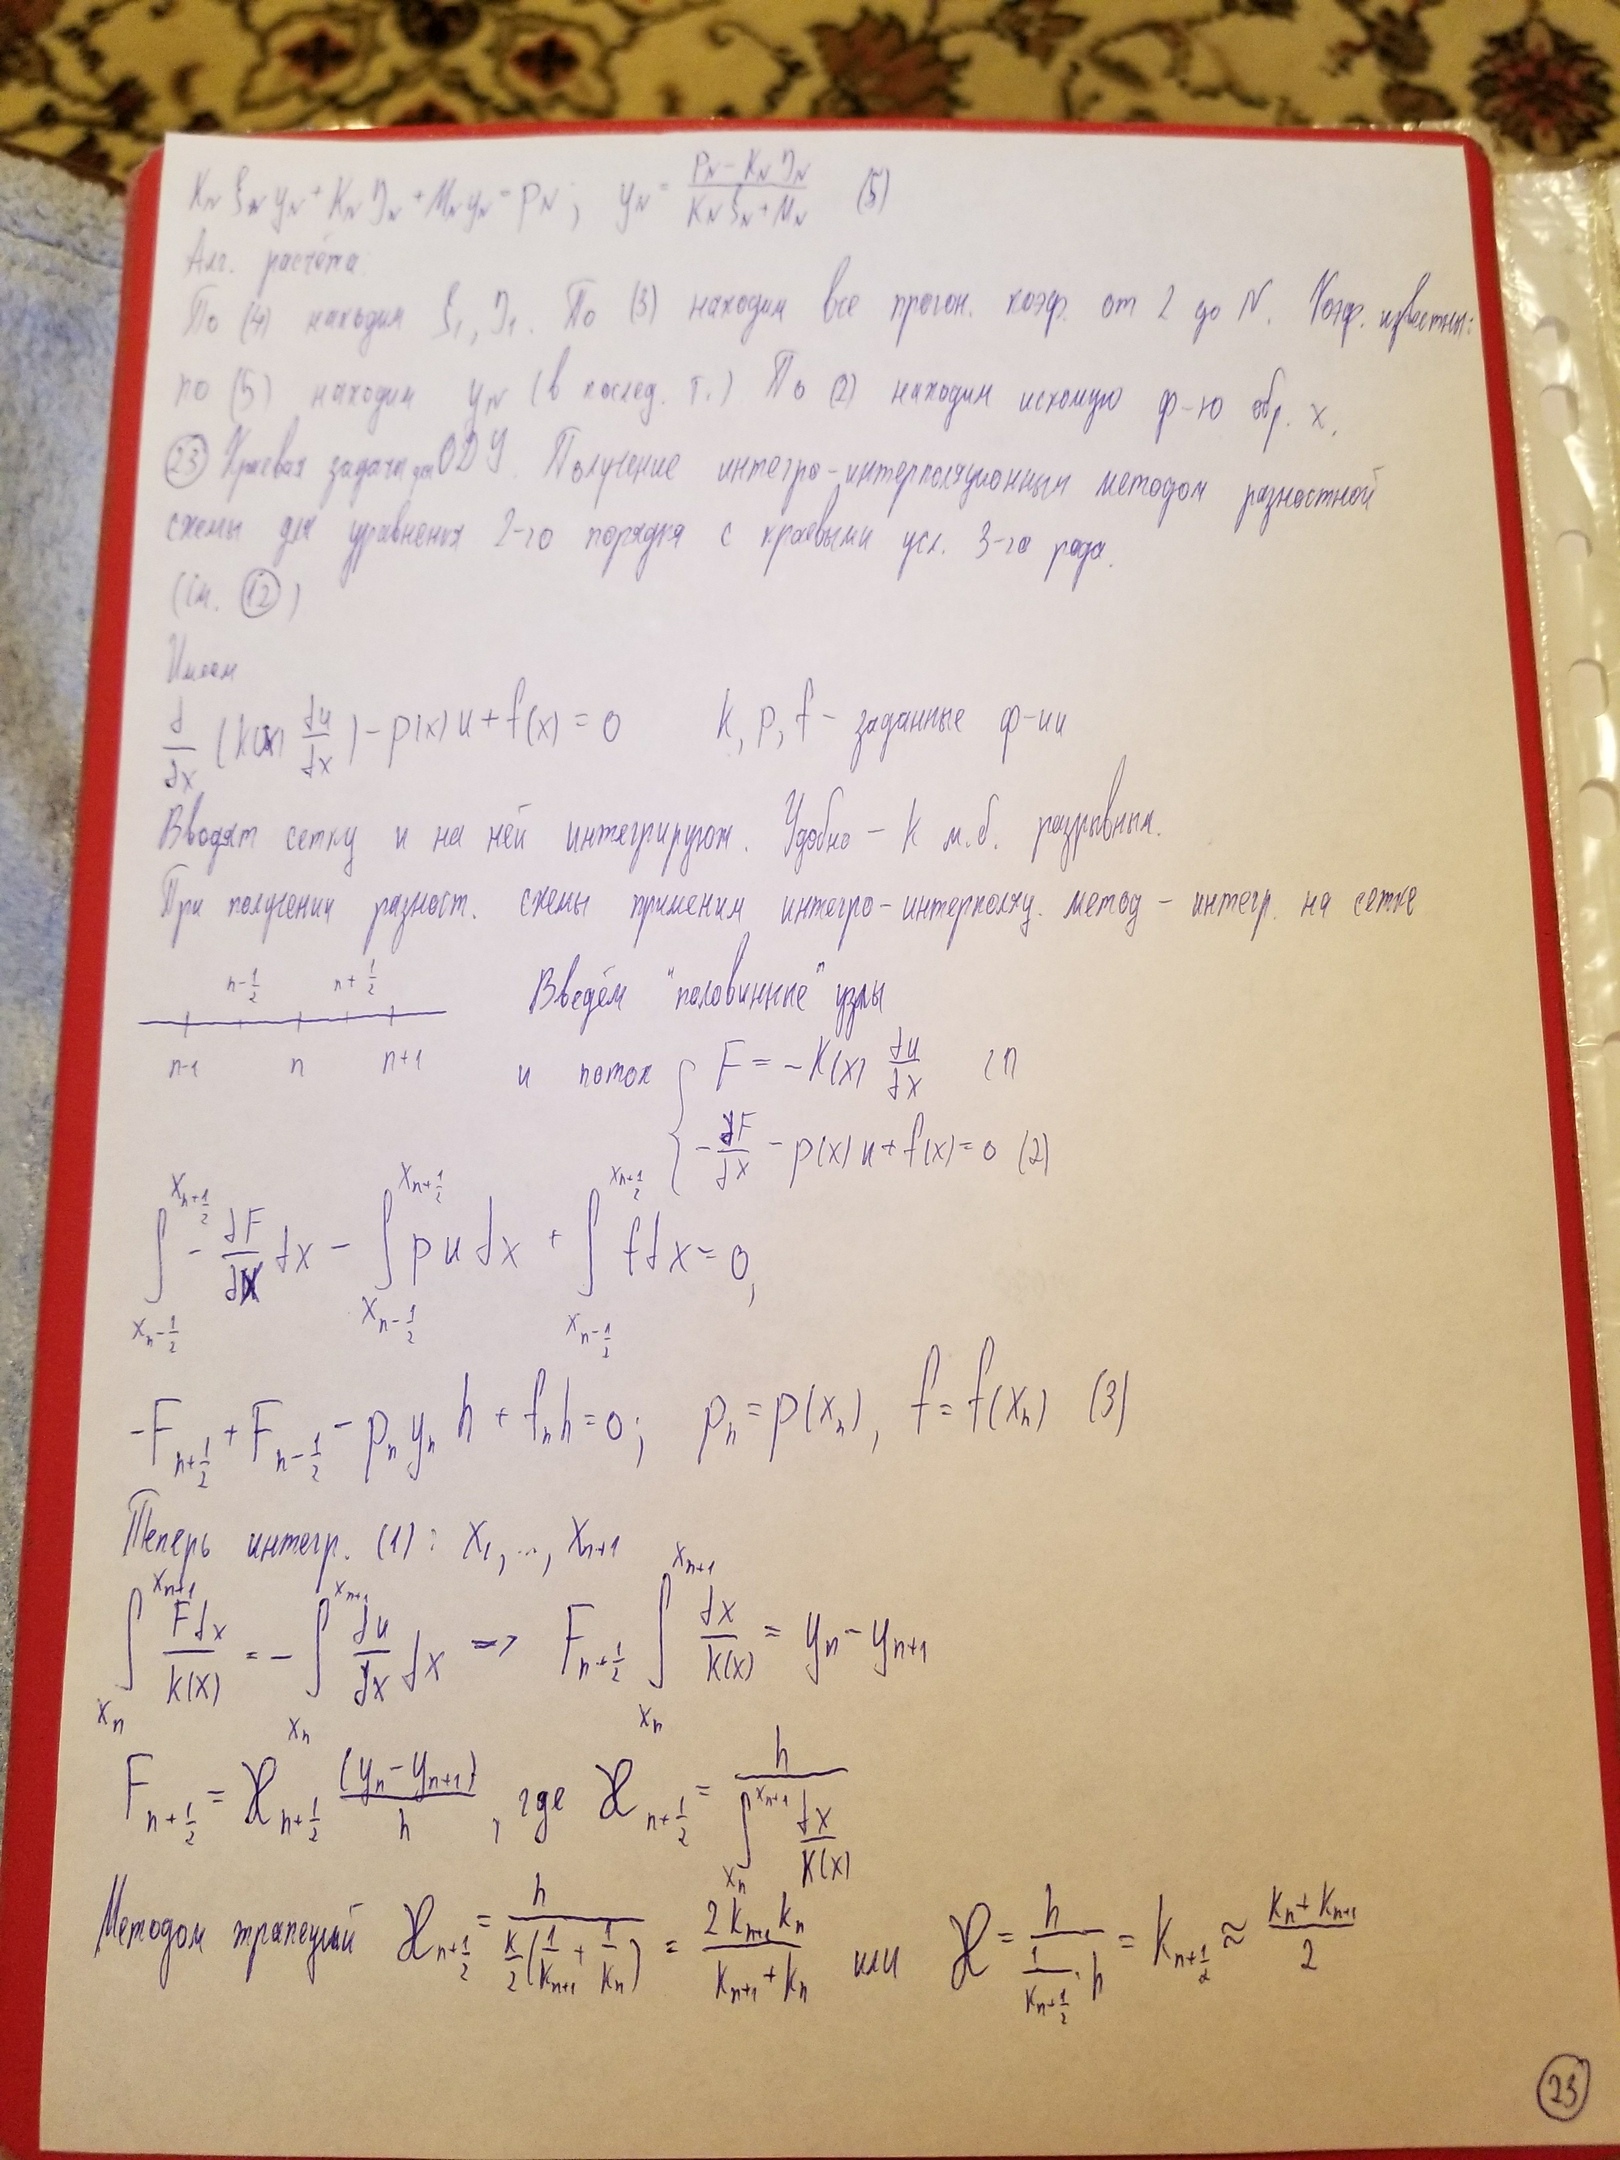 K_N ξ_N y_N + K_N η_N + M_N y_N = P_N; y_N = (P_N - K_N η_N)/(K_N ξ_N + M_N) (5)
Алг. расчёта
По (4) находим ξ_1, η_1. По (3) находим все прогон. коэф. от 2 до N. Коэф. известны:
по (5) находим y_N (в послед. т.) По (2) находим искомую ф-ю обр. х.
(23) Краевая задача для ОДУ. Получение интегро-интерполяционным методом разностной
схемы для уравнения 2-го порядка с краевыми усл. 3-го рода.
(см. (12))
Имеем
d/dx (k(x) du/dx) - p(x) u + f(x) = 0 k, p, f - заданные ф-ии
Вводят сетку и на ней интегрируют. Удобно - k м.б. разрывным.
При получении разност. схемы применим интегро-интерполяц. метод - интегр. на сетке
n-1/2 n+1/2
Введём "половинные" узлы
n-1 n n+1
и поток { F = -K(x) du/dx (1)
-dF/dx - p(x) u + f(x) = 0 (2)
∫_{x_{n-1/2}}^{x_{n+1/2}} - dF/dx dx - ∫_{x_{n-1/2}}^{x_{n+1/2}} p u dx + ∫_{x_{n-1/2}}^{x_{n+1/2}} f dx = 0,
-F_{n+1/2} + F_{n-1/2} - p_n y_n h + f_n h = 0; p_n = p(x_n), f = f(x_n) (3)
Теперь интегр. (1): x_1, ..., x_{n+1}
∫_{x_n}^{x_{n+1}} F dx/k(x) = - ∫_{x_n}^{x_{n+1}} du/dx dx => F_{n+1/2} ∫_{x_n}^{x_{n+1}} dx/k(x) = y_n - y_{n+1}
F_{n+1/2} = ϰ_{n+1/2} (y_n - y_{n+1})/h, где ϰ_{n+1/2} = h/(∫_{x_n}^{x_{n+1}} dx/K(x))
Методом трапеций ϰ_{n+1/2} = h/(h/2 (1/k_{n+1} + 1/k_n)) = 2 k_{n+1} k_n/(k_{n+1} + k_n) или ϰ = h/(1/k_{n+1/2} · h) = k_{n+1/2} ≈ (k_n + k_{n+1})/2
(23)